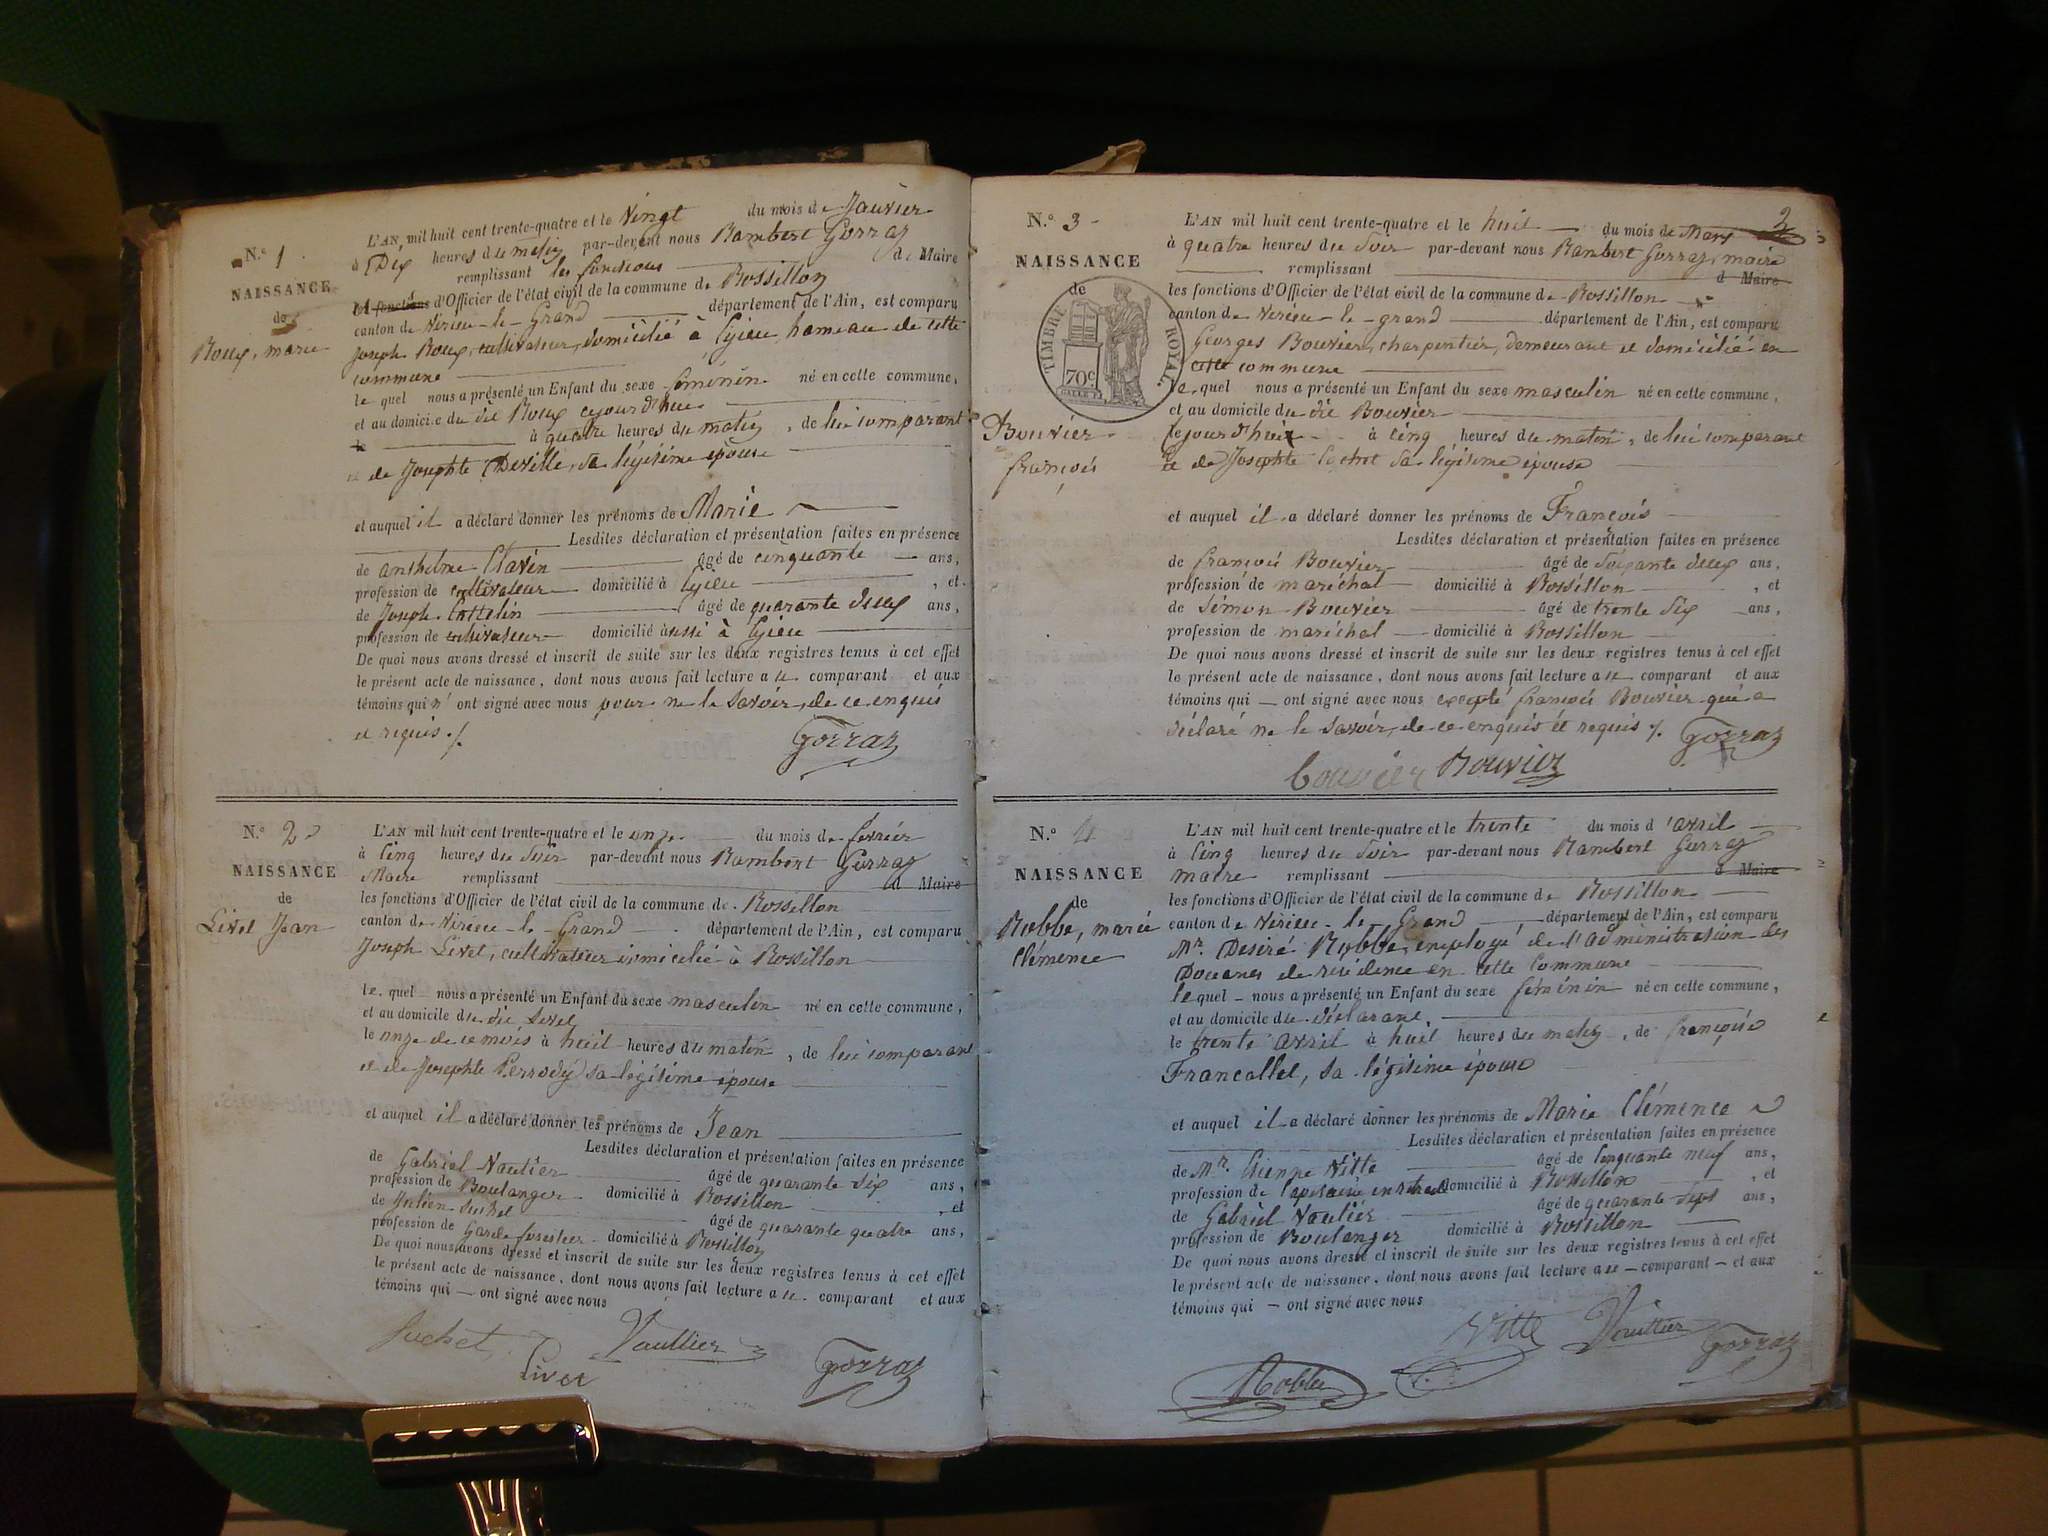 N.° 1
NAISSANCE
de
Roux, marie
L'AN mil huit cent trente-quatre et le Vingt du mois de Janvier
à Dix heures du matin par-devant nous Rambert Gorraz
remplissant les fonctions d Maire
d'Officier de l'état civil de la commune de Rossillon
canton de Virieu-le-Grand département de l'Ain, est comparu
Joseph Roux, cultivateur, domicilié à Cyzieu, hameau de cette
commune
le quel nous a présenté un Enfant du sexe féminin né en cette commune,
et au domicile du dit Roux cejourd'hui
à quatre heures du matin, de lui comparant
et de Josephte Deville, sa légitime épouse
et auquel il a déclaré donner les prénoms de Marie
Lesdites déclaration et présentation faites en présence
de anthelme Clavin âgé de cinquante ans,
profession de cultivateur domicilié à Cyzieu, et
de Joseph Cattelin âgé de quarante deux ans,
profession de cultivateur domicilié aussi à Cyzieu
De quoi nous avons dressé et inscrit de suite sur les deux registres tenus à cet effet
le présent acte de naissance, dont nous avons fait lecture a u comparant et aux
témoins qui n' ont signé avec nous pour ne le savoir, de ce enquis
et requis ./.
Gorraz
N.° 2
NAISSANCE
de
Livet Jean
L'AN mil huit cent trente-quatre et le onze du mois de février
à Cinq heures du soir par-devant nous Rambert Gorraz
Maire remplissant d Maire
les fonctions d'Officier de l'état civil de la commune de Rossillon
canton de Virieu-le-Grand département de l'Ain, est comparu
Joseph Livet, cultivateur domicilié à Rossillon
le quel nous a présenté un Enfant du sexe masculin né en cette commune,
et au domicile du dit Livet
le onze de ce mois à huit heures du matin, de lui comparant
et de Josephte Perrody sa légitime épouse
et auquel il a déclaré donner les prénoms de Jean
Lesdites déclaration et présentation faites en présence
de Gabriel Vautier âgé de quarante six ans,
profession de Boulanger domicilié à Rossillon, et
de Julien Suchet âgé de quarante quatre ans,
profession de Garde forestier domicilié à Rossillon
De quoi nous avons dressé et inscrit de suite sur les deux registres tenus à cet effet
le présent acte de naissance, dont nous avons fait lecture a u comparant et aux
témoins qui ont signé avec nous
Suchet Vaullier
Livet Gorraz
2
N.° 3
NAISSANCE
de
TIMBRE ROYAL.
70c
Bouvier
françois
L'AN mil huit cent trente-quatre et le huit du mois de Mars
à quatre heures du soir par-devant nous Rambert Gorraz, maire
remplissant d Maire
les fonctions d'Officier de l'état civil de la commune de Rossillon
canton de Virieu-le-grand département de l'Ain, est comparu
Georges Bouvier, charpentier, demeurant et domicilié en
cette commune
le quel nous a présenté un Enfant du sexe masculin né en cette commune,
et au domicile du dit Bouvier
cejourd'hui à cinq heures du matin, de lui comparant
et de Josephte Cochet sa légitime épouse
et auquel il a déclaré donner les prénoms de François
Lesdites déclaration et présentation faites en présence
de françois Bouvier âgé de soixante deux ans,
profession de maréchal domicilié à Rossillon, et
de Simon Bouvier âgé de trente six ans,
profession de maréchal domicilié à Rossillon
De quoi nous avons dressé et inscrit de suite sur les deux registres tenus à cet effet
le présent acte de naissance, dont nous avons fait lecture a u comparant et aux
témoins qui ont signé avec nous excepté françois Bouvier qui a
déclaré ne le savoir, de ce enquis et requis ./. Gorraz
bouvier Bouvier
N.° 4
NAISSANCE
de
Robbe, marie
Clémence
L'AN mil huit cent trente-quatre et le trente du mois d'avril
à Cinq heures du soir par-devant nous Rambert Gorraz
maire remplissant d Maire
les fonctions d'Officier de l'état civil de la commune de Rossillon
canton de Virieu-le-Grand département de l'Ain, est comparu
Mr. Desiré Robbe, employé de l'administration des
Douanes de résidence en cette commune
le quel nous a présenté un Enfant du sexe féminin né en cette commune,
et au domicile du déclarant,
le trente avril à huit heures du matin, de françoise
Francallet, sa légitime épouse
et auquel il a déclaré donner les prénoms de Marie Clémence
Lesdites déclaration et présentation faites en présence
de Mr. Etienne Vitte âgé de Cinquante neuf ans,
profession de Capitaine en retraite domicilié à Rossillon, et
de Gabriel Vautier âgé de quarante sept ans,
profession de Boulanger domicilié à Rossillon
De quoi nous avons dressé et inscrit de suite sur les deux registres tenus à cet effet
le présent acte de naissance, dont nous avons fait lecture a u comparant et aux
témoins qui ont signé avec nous
Vitte Vaullier Gorraz
Robbe